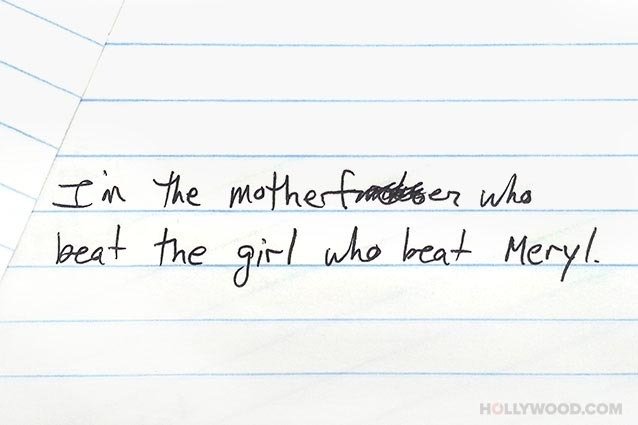 I'm the motherf er who
beat the girl who beat Meryl.
HOLLYWOOD.COM